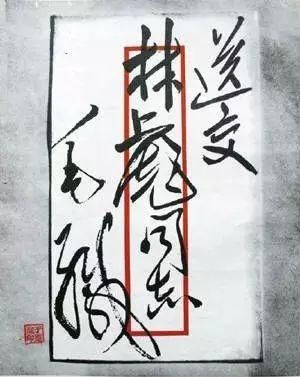 送交
林彪同志
毛缄